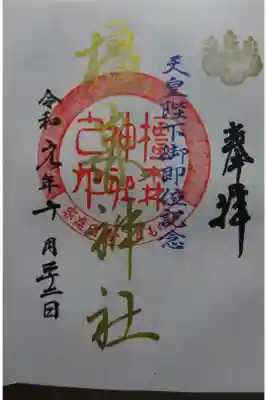 奉拝
天皇陛下御即位記念
橿森神社
令和元年十月廿二日